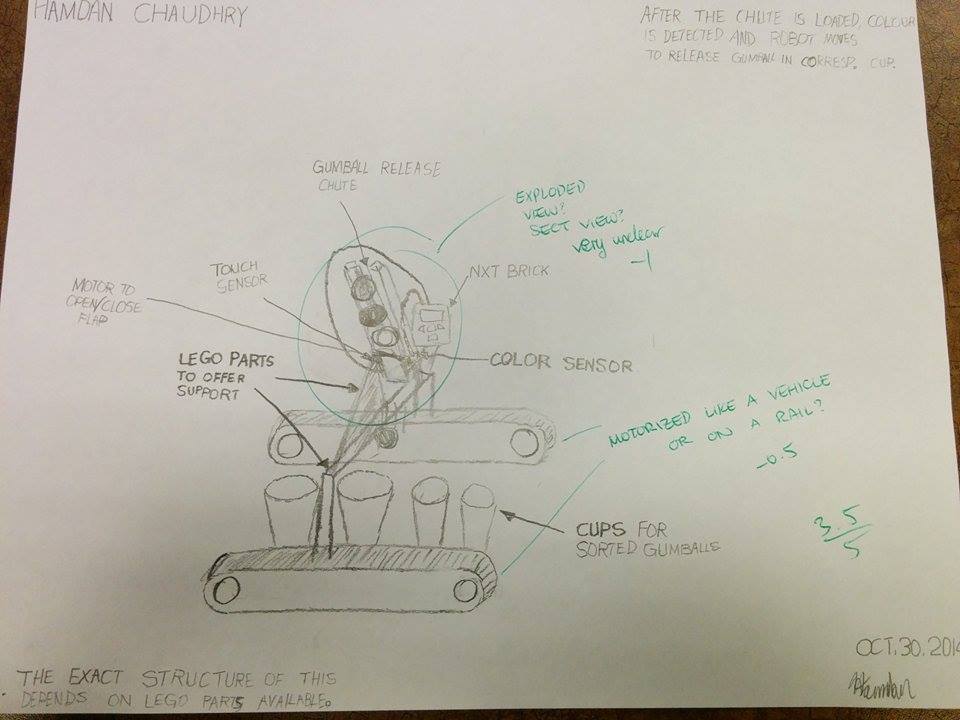 HAMDAN CHAUDHRY
AFTER THE CHUTE IS LOADED, COLOUR
IS DETECTED AND ROBOT MOVES
TO RELEASE GUMBALL IN CORRESP. CUP.
GUMBALL RELEASE
CHUTE
EXPLODED
VIEW?
SECT VIEW?
very unclear
-1
TOUCH
SENSOR
NXT BRICK
MOTOR TO
OPEN/CLOSE
FLAP
LEGO PARTS
TO OFFER
SUPPORT
COLOR SENSOR
MOTORIZED LIKE A VEHICLE
OR ON A RAIL?
-0.5
3.5
5
CUPS FOR
SORTED GUMBALLS
OCT.30.2014
THE EXACT STRUCTURE OF THIS
DEPENDS ON LEGO PARTS AVAILABLE.